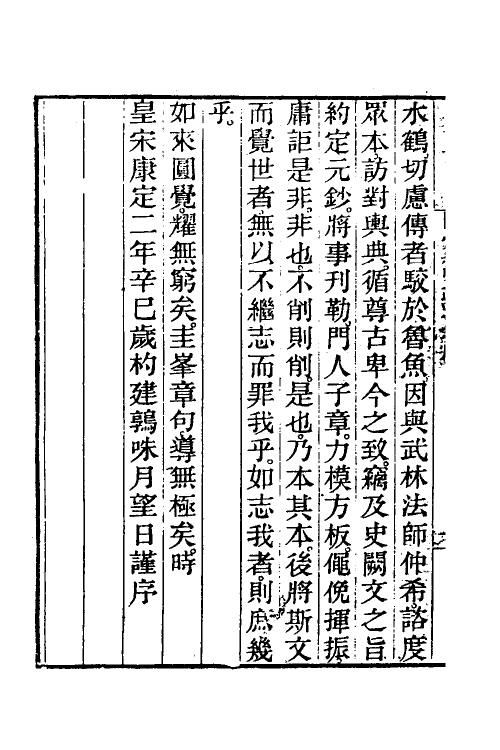 水鶴。切慮傳者駮於魯魚。因與武林法師仲希。諮度
眾本。訪對輿典。循尊古卑今之致。竊及史闕文之旨
約定元鈔。將事刊勒。門人子章。力模方板。僶俛揮振。
庸詎是非。非也。不削則削。是也。乃本其本。後將斯文
而覺世者。無以不繼志而罪我乎。如志我者。則庶幾
乎。
如來圓覺。耀無窮矣。圭峯章句。導無極矣。時
皇宋康定二年辛巳歲杓建鶉咮月望日謹序